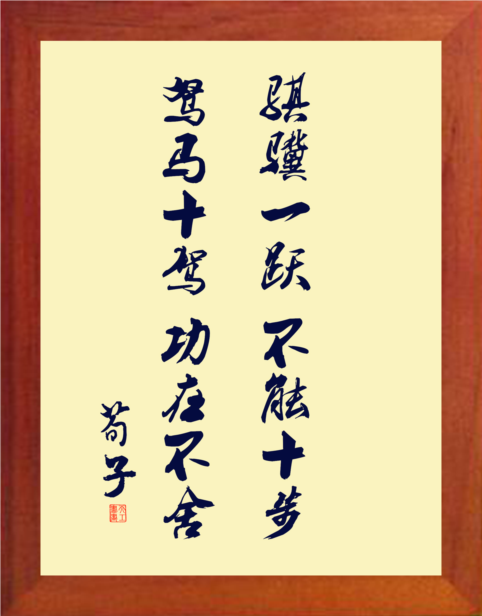 骐骥一跃 不能十步
驽马十驾 功在不舍
荀子